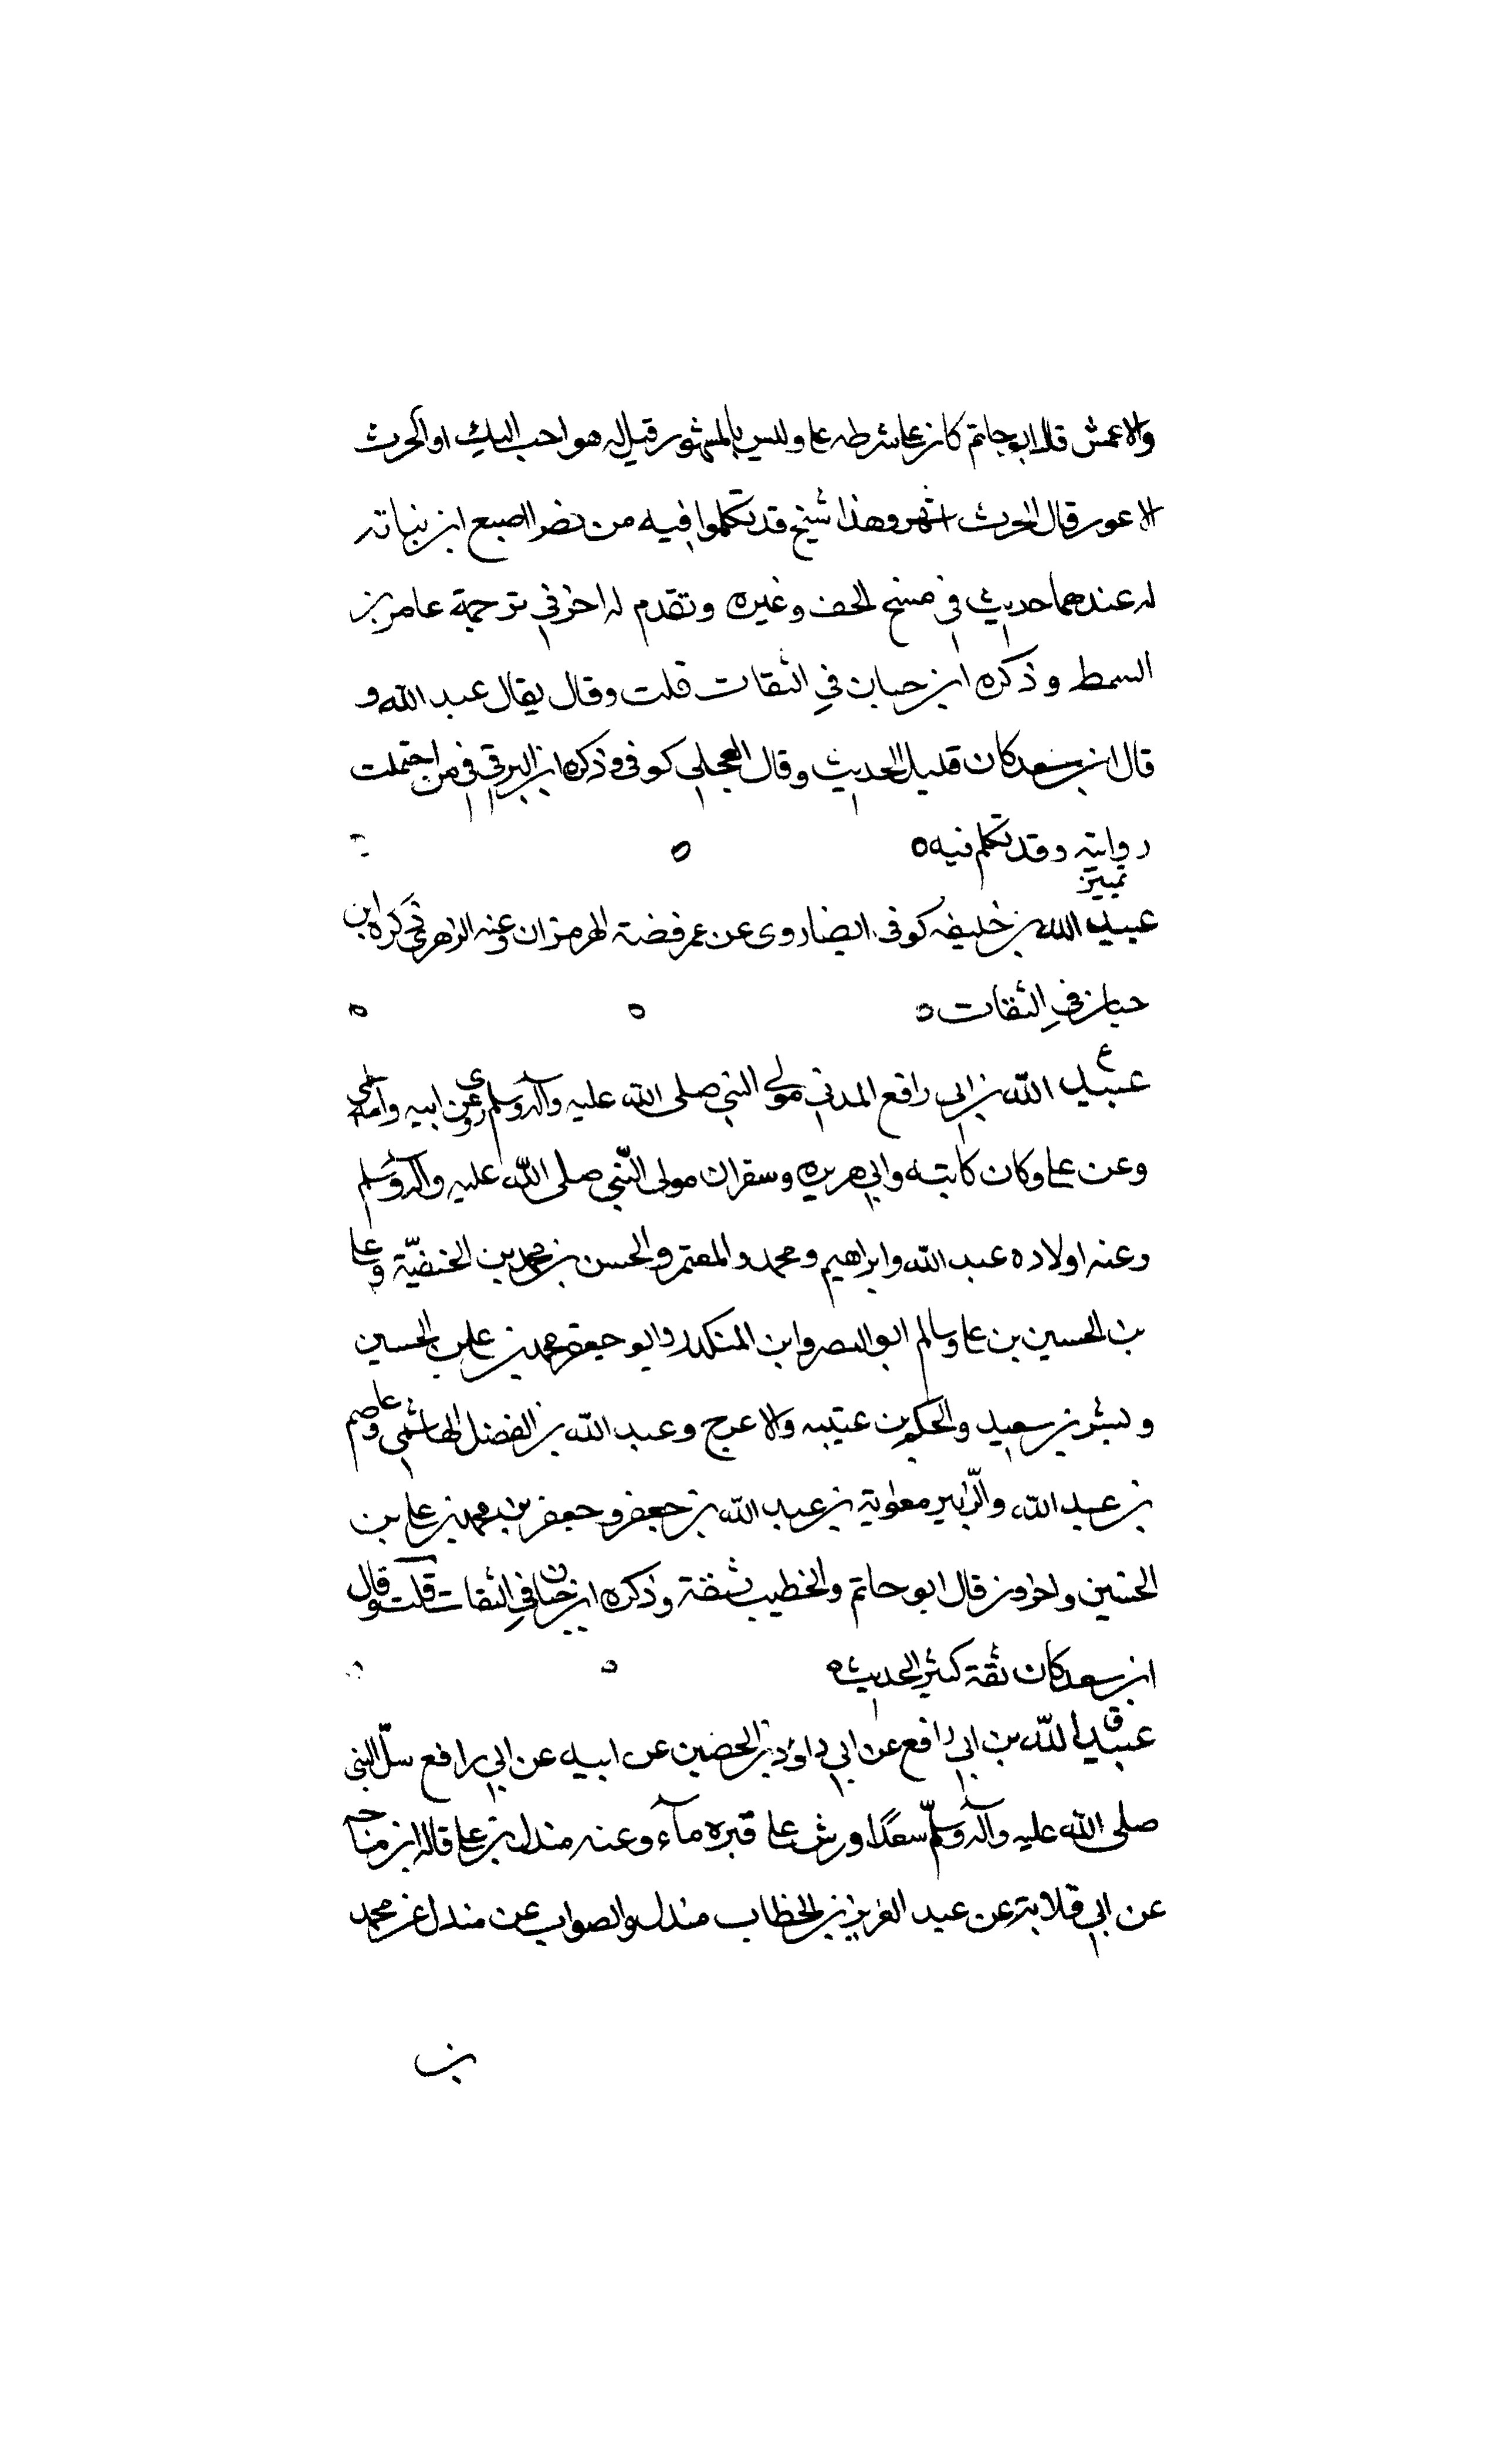 والاعمش قال ابو حاتم كان على شرطه على وليس بالمشهور قيل له هو احب اليك او الحرث
الاعور قال الحرث اشهر وهذا شيخ قد تكلموا فيه من نضر الاصبع ابن نباته
له عندهما حديث في مسح الخف وغيره وتقدم له اخر في ترجمة عامر بن
السمط وذكره ابن حبان في الثقات قلت وقال يقال عبد الله و
قال ابن سعد كان قليل الحديث وقال العجلي كوفي وذكره ابن البرقي في من احتملت
روايته وقد تكلم فيه ه
تمييز
عبيد الله بن خليفه كوفي ايضا روى عن عمر قصة الهرمزان وعنه الزهري ذكره ابن
حبان في الثقات ه
ع
عبيد الله بن ابي رافع المدني مولى النبي صلى الله عليه وآله وسلم روى عن ابيه وامه سلمى
وعن علي وكان كاتبه وابي هريره وسقران مولى النبي صلى الله عليه وآله وسلم
وعنه اولاده عبد الله وابراهيم ومحمد والمعتمر والحسن بن محمد بن الحنفيّة وعلي
بن الحسين بن علي وسالم ابو النصر وابن المنكدر وابو جعفر محمد بن علي بن الحسين
وبشر بن سعيد والحكم بن عتيبه والاعرج وعبد الله بن الفضل الهاشمي وعاصم
بن عبيد الله والزبير معاوية بن عبد الله بن جعفر وجعفر بن محمد بن علي بن
الحسين واخرون قال ابو حاتم والخطيب ثقة وذكره ابن حبان في الثقات قلت وقال
ابن سعد كان ثقة كثير الحديث ه
ق
عبيد الله بن ابي رافع عن ابي داؤد بن الحصين عن ابيه عن ابي رافع سلّ النبي
صلى الله عليه وآله وسلّم سعدًا ورش على قبره مآء وعنه مندل بن علي قاله ابن ماجه
عن ابي قلابة عن عبد العزيز بن الخطاب مندل والصواب عن مندل عن محمد
بن